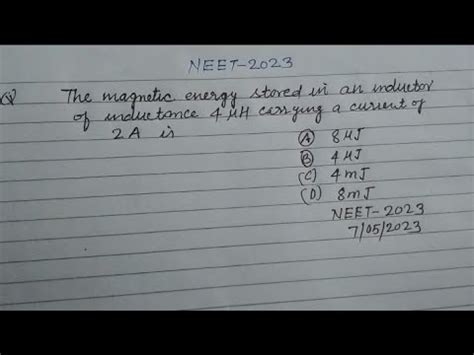 NEET-2023
Q The magnetic energy stored in an inductor
of inductance 4 μH carrying a current of
2A is
(A) 8 μJ
(B) 4 μJ
(C) 4 mJ
(D) 8 mJ
NEET-2023
7/05/2023